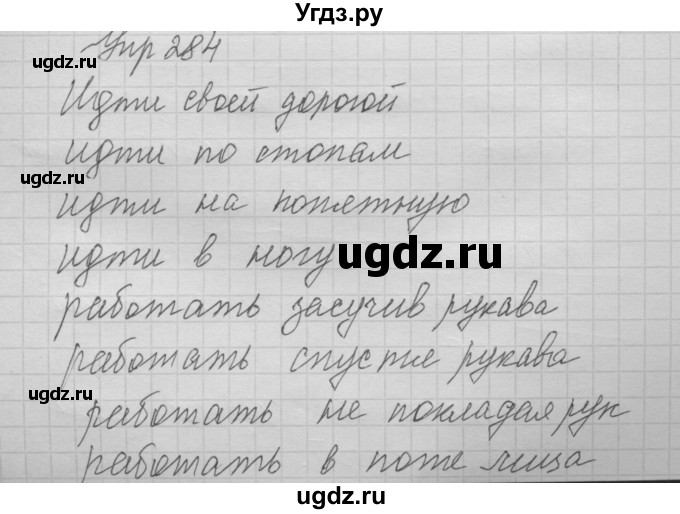 Угдз.ру
Упр 284
ugdz.ru
Идти своей дорогой
идти по стопам
ugdz.ru
идти на попятную
ugdz.ru
идти в ногу
ugdz.ru
работать засучив рукава
работать спустя рукава
ugdz.ru
работать не покладая рук
работать в поте лица
ugdz.ru
ugdz.ru